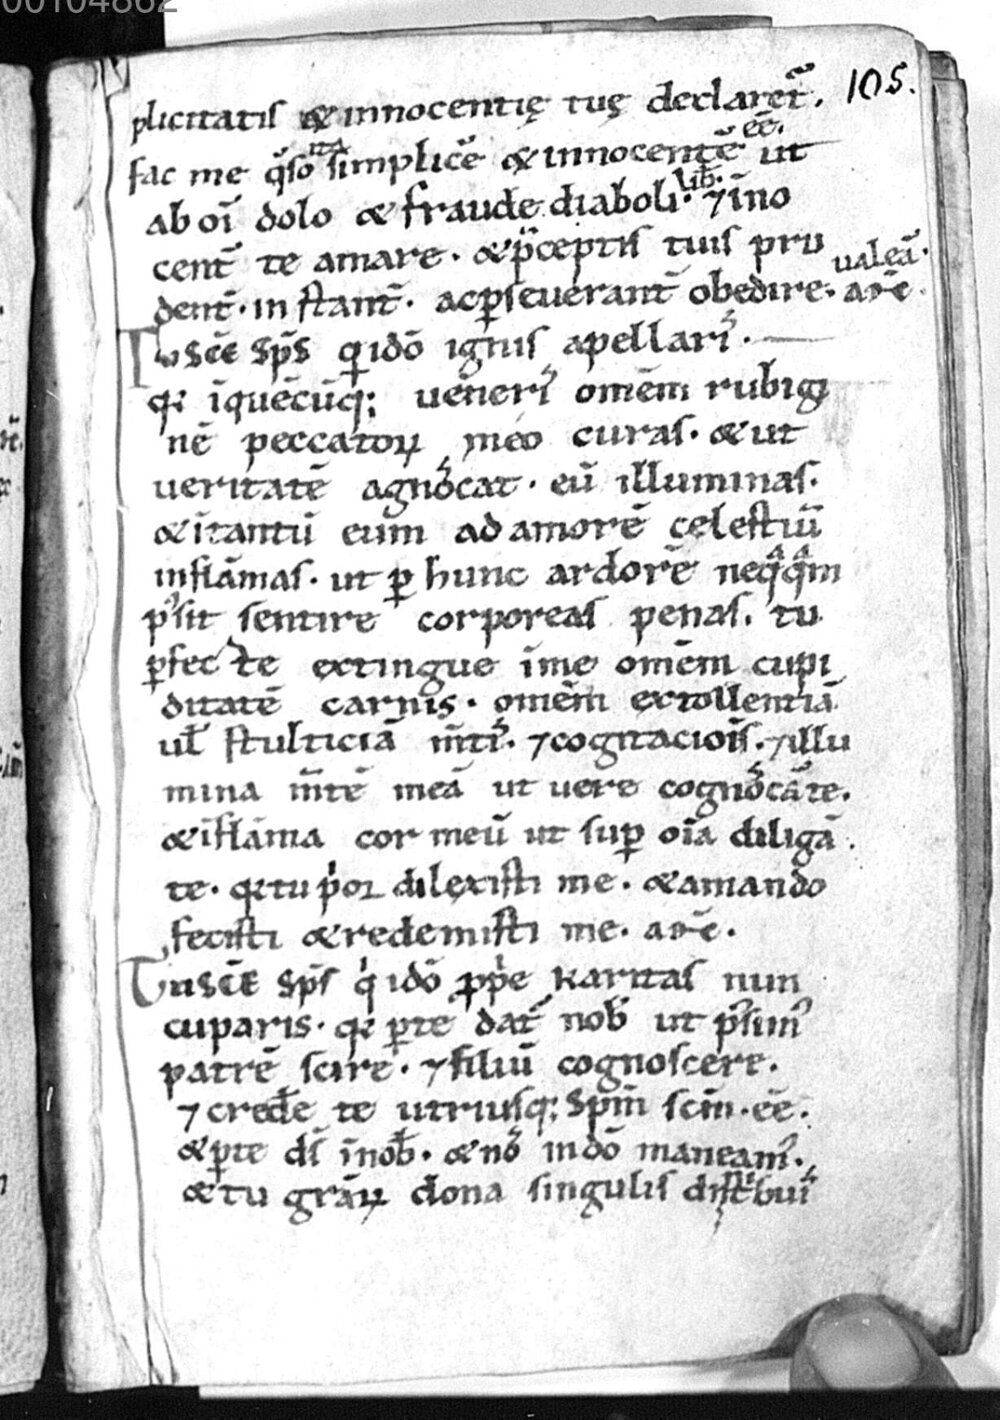 00104862
105.
plicitatis & innocentię tuę declaret̃.
fac me q̃so ita simplicē & innocentē eē. ut
ab oī dolo & fraude diaboli lib̃. ⁊ īno
cent̃ te amare. & p̃ceptis tuis pru
dent̃. instant̃. ac pseuerant̃ obedire. ualeā. am̄e.
Tu sc̄e sp̄s q idō ignis apellari᷒.
q̃ īquēcūq; ueneri᷒ omēm rubigi
nē peccatoꝝ meo curas. & ut
ueritatē agnocat. eū illuminas.
& ītantū eum ad amorē celestiū
inflāmas. ut ꝑ hunc ardorē neqqm
p᷒sit sentire corporeas penas. tu
ꝑfecte extingue īme omēm cupi
ditatē carnis. omēm extollentiā
ul̃ stulticiā m̄ti᷒. ⁊ cogitaciōis. ⁊ illu
mina m̄tē meā ut uere cognocā te.
& īflāma cor meū ut suꝑ oīa diligā
te. q̃ tu p̍or dilexisti me. & amando
fecisti & redemisti me. am̄e.
Tu sc̄e sp̄s q̍ idō ꝓp̍e karitas nun
cuparis. q̃ ꝑ te dat̃ nob̃ ut p᷒sim᷒
patrē scire. ⁊ filiū cognoscere.
⁊ credēe te utriusq; Spm̄ scm̄. eē.
& ꝑ te ds̄ īnob̃. & no᷒ indō maneam᷒.
& tu grāꝝ dona singulis distbui᷒